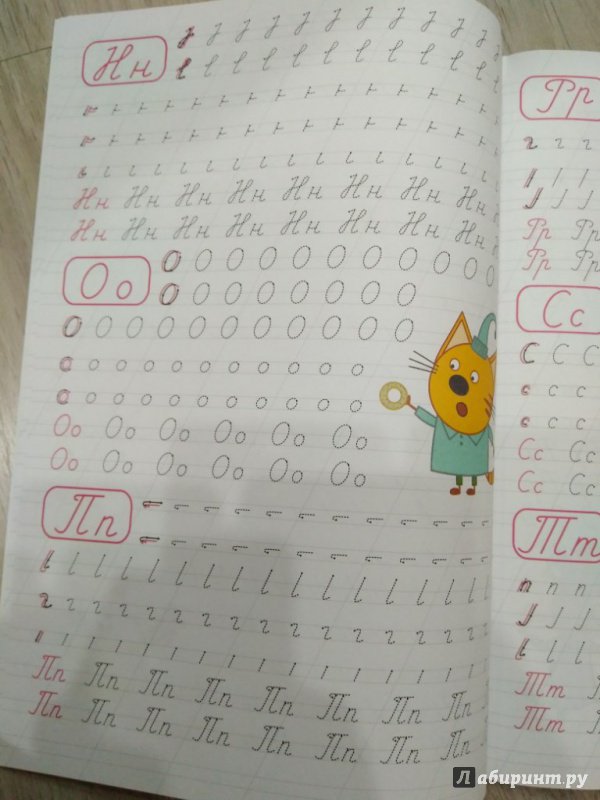 Нн
Нн Нн Нн Нн Нн Нн Нн Нн
Нн Нн Нн Нн Нн Нн Нн Нн
Оо
О О О О О О О О О О О
О О О О О О О О
О О О О О О О О О О О
о о о о о о о о о о о
о о о о о о о о о о о
Оо Оо Оо Оо Оо Оо
Оо Оо Оо Оо Оо Оо
Пп
Пп Пп Пп Пп Пп Пп Пп Пп
Пп Пп Пп Пп Пп Пп Пп Пп
Рр
Рр Рр
Рр Рр
Сс
С С С
с с с
с с с
Сс Сс
Сс Сс
Тт
Тт
Тт
Лабиринт.ру